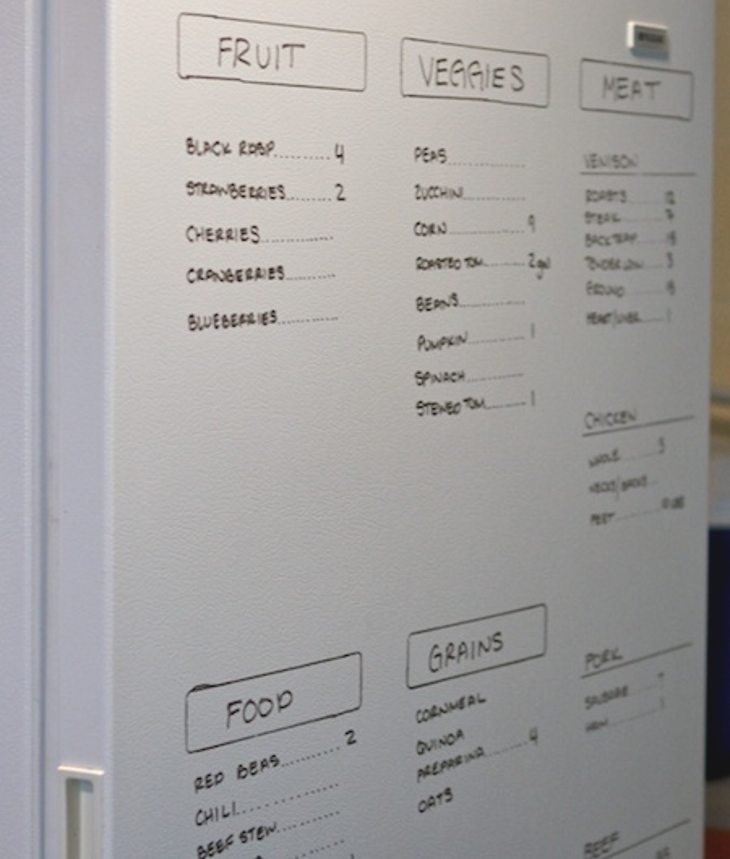 FRUIT
BLACK RASP..........4
STRAWBERRIES........2
CHERRIES............
CRANBERRIES.........
BLUEBERRIES...........
VEGGIES
PEAS..............
ZUCCHINI...........
CORN..............9
ROASTED TOM.......2 gal
BEANS.............
PUMPKIN...........1
SPINACH...........
STEWED TOM........1
MEAT
VENISON
ROASTS......12
STEAK.......7
BACKSTRAP
TENDERLOIN...3
GROUND
HEART/LIVER...1
CHICKEN
WHOLE.......3
NECKS/BACKS...
FEET
FOOD
RED BEAS..........2
CHILI...........
BEEF STEW..........
GRAINS
CORNMEAL
QUINOA
PREPARINA.........4
OATS
PORK
SAUSAGE
HAM........1
BEEF